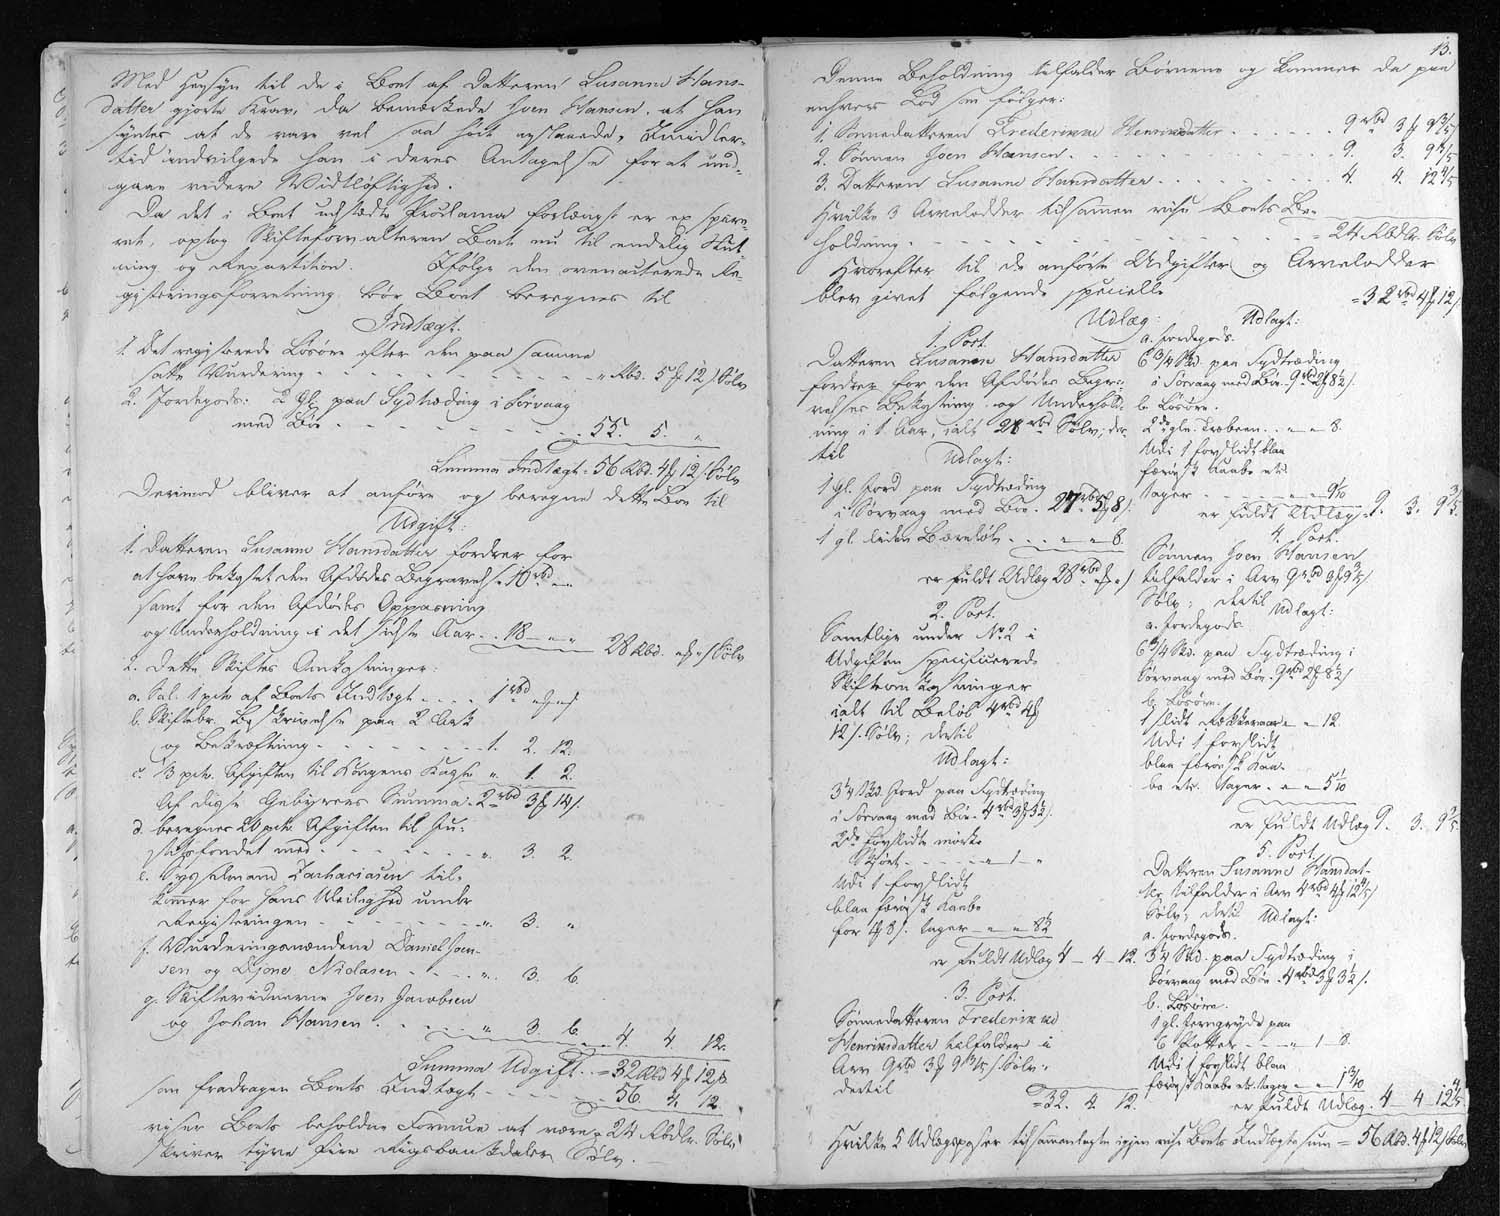 Med Hensyn til de i Boet af Datteren Susanne Hans-
datter gjorte Krav, da bemærkede Joen Hansen, at han
syntes at de vare vel saa höit ansatte, Imidler-
tid indvilgede han i deres Antagelse for at und-
gaae videre Vidtløftighed.
Da det i Boet udstædte Proclama forlængst er expire-
ret, optog Skifteforvalteren Boet nu til endelig Slut-
ning og Repartition. Ifølge den ovenacterede Re-
gistreringsforretning bör Boet beregnes til
Indtægt.
1. Det registrerede Lösöre efter den paa samme
satte Vurdering - - - " Rbd. 5 ꝑ 12 s Sölv
2. Jordegods: 2 Gl. paa Sydtræding i Sörvaag
med Bör - - - 55. 5. "
Summa Indtægt = 56 Rbd. 4 ꝑ 12 s Sölv
Derimod bliver at anföre og beregne dette Boe til
Udgift:
1. Datteren Susanne Hansdatter fordrer for
at have bekostet den Afdödes Begravelse 10 rbd
samt for den Afdödes Oppasning
og Underholdning i det sidste Aar . . 18 - " " 28 Rbd. " ꝑ " s Sölv
2. Dette Skiftes Omkostninger:
a. Sal. 1 pct af Boets Indtægt . . . . 1 rbd " ꝑ " s
b. Skiftebr. Beskrivelse paa 2 Ark
og Bekræftning - - - 1. 2. 12.
c. 3 pct. Afgiften til Kongens Kasse " 1. 2.
Af disse Gebyrers Summa 2 rbd 3 ꝑ 14 s.
d. beregnes 20 pct. Afgiften til Ju-
stitsfondet med - - - " 3. 2.
e. Sysselmand Zachariasen til-
kommer for hans Uleilighed under
Registeringen - - - " 3. "
f. Vurderingsmændene Daniel Joen-
sen og Djone Niclasen - - - " 3. 6.
g. Skiftevidnerne Joen Jacobsen
og Johan Hansen - - - " 3. 6. 4. 4 12.
Summa Udgift - = 32 Rbd 4 ꝑ 12 s
som fradragen Boets Indtægt - - - 56. 4. 12.
viser Boets beholdne Formue at være = 24 Rbdlr. Sölv
skriver tyve fire Rigsbankdaler Sölv. -
13.
Denne Beholdning tilfalder Börnene og kommer da paa
enhvers Lod som fölger:
1. Sönnedatteren Frederikke Henriksdatter - - - 9 rbd 3 ꝑ 9 3/5 s
2. Sönnen Joen Hansen - - - 9. 3. 9 3/5
3. Datteren Susanne Hansdatter - - - 4. 4. 12 4/5
Hvilke 3 Arvelodder tilsammen vise Boets Be-
holdning - - - = 24 Rbdlr. Sölv
Hvorefter til de anförte Udgifter og Arvelodder
blev givet fölgende specielle = 32 rbd 4 ꝑ 12 s.
Udlæg:
1. Post.
Datteren Susanne Hansdatter
fordrer for den Afdödes Begra-
velses Bekostning og Underhold-
ning i 1 Aar, ialt 28 rbd Sölv; der-
til Udlagt:
1 gl. Jord paa Sydtræding
i Sörvaag med Bör - 27 rbd 5 ꝑ 8 s.
1 gl. - - - " " 8.
er fuldt Udlæg 28 rbd " ꝑ " s
2. Post.
Samtlige under No 2 i
Udgiften specificerede
Skifteomkostninger
ialt til Belöb 4 rbd 4 ꝑ
12 s. Sölv; dertil
Udlagt:
3 1/4 Skd. Jord paa Sydtræding
i Sörvaag med Bör - 4 rbd 3 ꝑ 3 1/2 s.
2 do forslidte mörke
Skjört - - - " 1 - "
Udi 1 forslidt
blaa færöisk Kaabe
for 1 ꝑ 8 s. tager - " " 8 1/2
er fuldt Udlæg 4 - 4 - 12.
3. Post.
Sönnedatteren Frederikke
Henriksdatter tilfalder i
Arv 9 rbd 3 ꝑ 9 3/5 s Sölv.
dertil
= 32. 4. 12.
Udlagt:
a. Jordegods.
6 3/4 Skd. paa Sydtræding
i Sörvaag med Bör. 9 rbd 2 ꝑ 8 1/2 s.
b. Lösöre.
2 de gln. . . " " 8.
Udi 1 forslidt blaa
færöisk Kaabe etc.
tager - - - " " 9 1/10
er fuldt Udlæg 9. 3. 9 3/5.
4. Post.
Sönnen Joen Hansen
tilfalder i Arv 9 rbd 3 ꝑ 9 3/5 s
Sölv; dertil Udlagt:
a. Jordegods.
6 3/4 Skd. paa Sydtræding i
Sörvaag med Bör. 9 rbd 2 ꝑ 8 1/2 s
b. Lösöre.
1 slidt " " 12.
Udi 1 forslidt
blaa færöisk Kaa-
be etc. tager - " " 5 1/10
er fuldt Udlæg 9. 3. 9 3/5.
5. Post.
Datteren Susanne Hansdat-
ter tilfalder i Arv 4 rbd 4 ꝑ 12 4/5 s
Sölv; dertil Udlagt:
a. Jordegods.
3 1/4 Skd. paa Sydtræding i
Sörvaag med Bör. 4 rbd 3 ꝑ 3 1/2 s.
b. Lösöre.
1 gl. Jerngryde paa
6 Potter - - - " 1 - 8.
Udi 1 forslidt blaa
færöisk Kaabe etc. tager " " 1 3/10
er fuldt Udlæg . 4 4 12 4/5
Hvilke 5 Udlægsposter tilsammenlagte igjen vise Boets Indtægtssum = 56 Rbd. 4 ꝑ 12 s Sölv